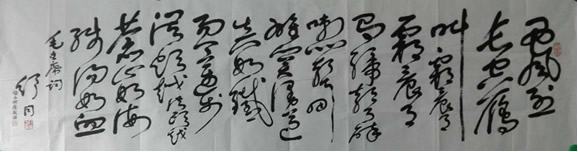 西风烈
长空雁
叫霜晨月
霜晨月
马蹄声碎
喇叭声咽
雄关漫道
真如铁
而今迈步
从头越从头越
苍山如海
残阳如血
毛主席词
舒同